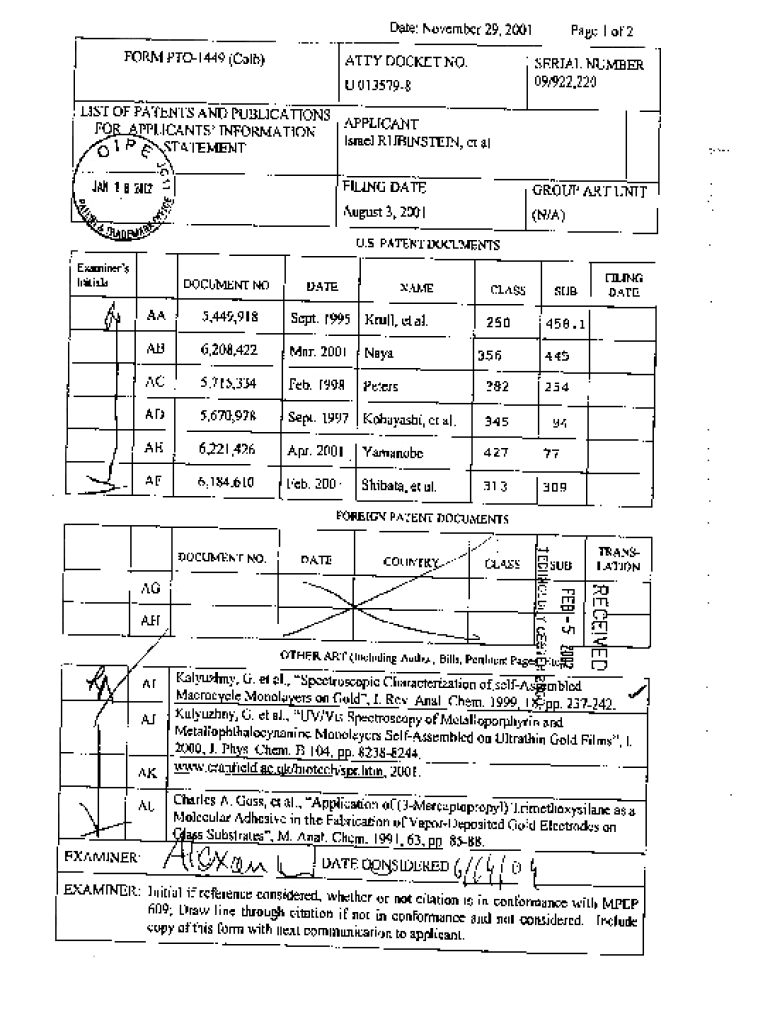 Date: November 29, 2001 Page 1 of 2
FORM PTO-1449 (Colb)
ATTY DOCKET NO.
U 013579-8
SERIAL NUMBER
09/922,220
LIST OF PATENTS AND PUBLICATIONS
FOR APPLICANTS' INFORMATION
STATEMENT
APPLICANT
Israel RUBINSTEIN, et al
OIPE JC11
JAN 18 2002
PATENT & TRADEMARK OFFICE
FILING DATE
August 3, 2001
GROUP ART UNIT
(N/A)
U.S. PATENT DOCUMENTS
Examiner's
Initials
DOCUMENT NO DATE NAME CLASS SUB FILING
DATE
AA 5,449,918 Sept. 1995 Krull, et al. 250 458.1
AB 6,208,422 Mar. 2001 Naya 356 445
AC 5,715,334 Feb. 1998 Peters 382 254
AD 5,670,978 Sept. 1997 Kobayashi, et al. 345 94
AE 6,221,426 Apr. 2001 Yamanobe 427 77
AF 6,184,610 Feb. 2001 Shibata, et al. 313 309
FOREIGN PATENT DOCUMENTS
DOCUMENT NO. DATE COUNTRY CLASS SUB TRANS-
LATION
AG
AH
RECEIVED
FEB -5 2002
TECHNOLOGY CENTER
OTHER ART (Including Author, Bills, Pertinent Pages, Etc.)
AI Kalyuzhny, G. et al., "Spectroscopic Characterization of self-Assembled
Macrocycle Monolayers on Gold", I. Rev. Anal. Chem. 1999, 18, pp. 237-242.
AJ Kalyuzhny, G. et al., "UV/Vis Spectroscopy of Metalloporphyrin and
Metallophthalocynanine Monolayers Self-Assembled on Ultrathin Gold Films", I.
2000, J. Phys. Chem. B 104, pp. 8238-8244.
AK www.cranfield.ac.uk/biotech/spr.htm, 2001.
AL Charles A. Goss, et al., "Application of (3-Mercaptopropyl) Trimethoxysilane as a
Molecular Adhesive in the Fabrication of Vapor-Deposited Gold Electrodes on
Glass Substrates", M. Anal. Chem. 1991, 63, pp. 85-88.
EXAMINER: DATE CONSIDERED
EXAMINER: Initial if reference considered, whether or not citation is in conformance with MPEP
609; Draw line through citation if not in conformance and not considered. Include
copy of this form with next communication to applicant.